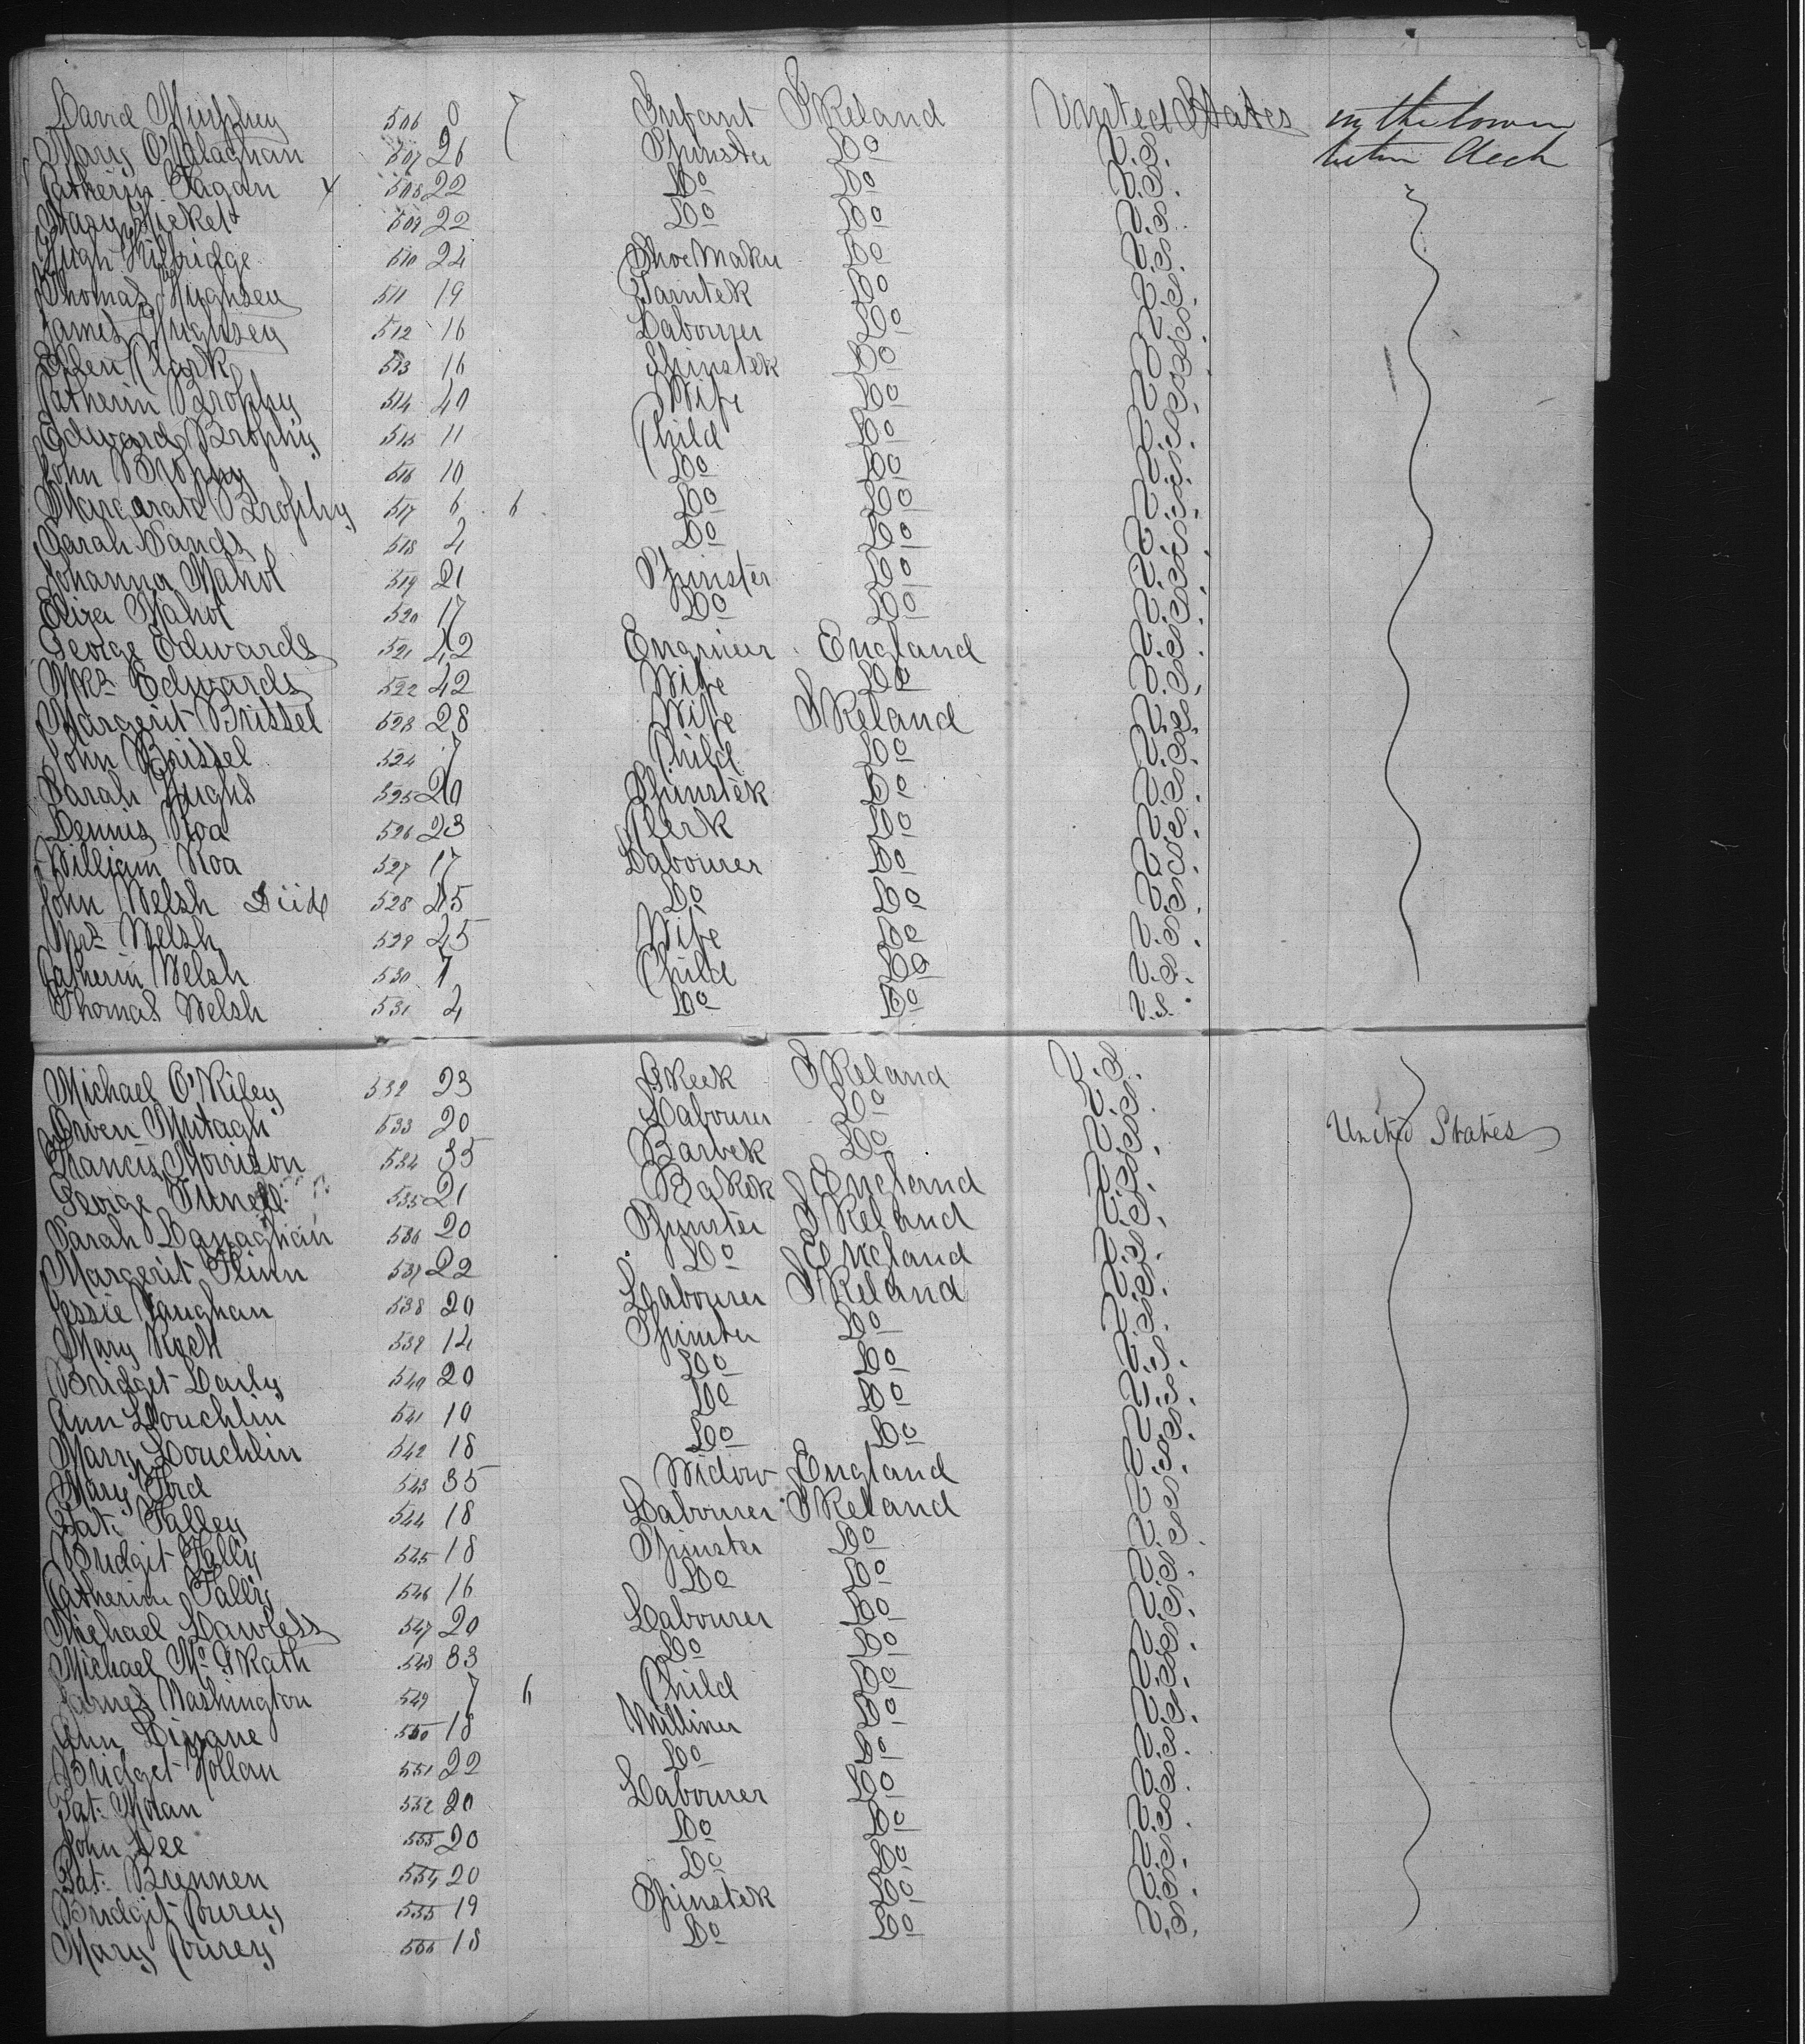 David Murphey 506 0 7 Infant IReland United States in the lower
Mary O'Calaghan 507 26 Spinster Do U.S. betwn deck
Catherin Fagan 508 22 Do Do U.S.
Mary 509 22 Do Do U.S.
Hugh Kilbridge 510 24 Shoe Maker Do U.S.
Thomas Hughsey 511 19 Do U.S.
James Hughsey 512 16 Labourer Do U.S.
Ellen Clark 513 16 Spinster Do U.S.
Catherin Brophy 514 40 Wife Do U.S.
Edward Brophy 515 11 Child Do U.S.
John Brophy 516 10 Do Do U.S.
Margarate Brophy 517 6 6 Do Do U.S.
Sarah Sands 518 4 Do Do U.S.
Johanna Mahol 519 21 Spinster Do U.S.
Eliza Mahol 520 17 Do Do U.S.
George Edwards 521 42 Engineer England U.S.
Mrs Edwards 522 42 Wife Do U.S.
Margerit Brissel 523 28 Wife IReland U.S.
John Brissel 524 7 Child Do U.S.
Sarah Hughs 525 20 Spinster Do U.S.
Dennis Roa 526 23 Clerk Do U.S.
William Roa 527 17 Labourer Do U.S.
John Welsh Died 528 25 Do Do U.S.
Mrs Welsh 529 25 Wife Do U.S.
Catherin Welsh 530 7 Child Do U.S.
Thomas Welsh 531 4 Do Do U.S.
Michael O'Riley 532 23 IReland U.S.
Owen Murtagh 533 20 Labourer Do U.S. United States
Francis Morrison 534 35 Barber Do U.S.
George 535 21 Baker England U.S.
Sarah Danaghan 536 20 Spinster IReland U.S.
Margerit Flinn 537 22 Do England U.S.
Jessie Vaughan 538 20 Labourer IReland U.S.
Mary Rock 539 14 Spinster Do U.S.
Bridget Daily 540 20 Do Do U.S.
Ann Louchlin 541 19 Do Do U.S.
Mary Louchlin 542 18 Do Do U.S.
Mary Ford 543 35 Widow England U.S.
Pat. Falley 544 18 Labourer IReland U.S.
Bridgit Fally 545 18 Spinster Do U.S.
Catherin Fally 546 16 Do Do U.S.
Michael Lawless 547 20 Labourer Do U.S.
Michael McGRath 548 33 Do Do U.S.
James Washington 549 7 6 Child Do U.S.
Ann Dinane 550 18 Milliner Do U.S.
Bridget Hollan 551 22 Do Do U.S.
Pat. Moran 552 20 Labourer Do U.S.
John Lee 553 20 Do Do U.S.
Pat. Brennen 554 20 Do Do U.S.
Bridgit Courey 555 19 Spinster Do U.S.
Mary Courey 556 18 Do Do U.S.